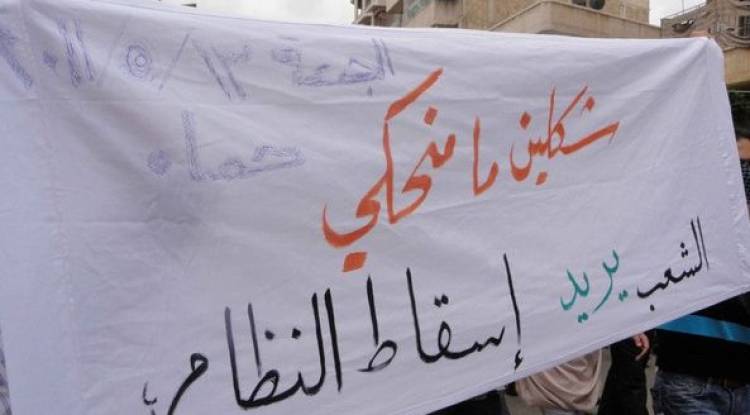 الجمعة ٢٠١١/٥/١٣
شكلين ما منحكي
الشعب يريد
إسقاط النظام